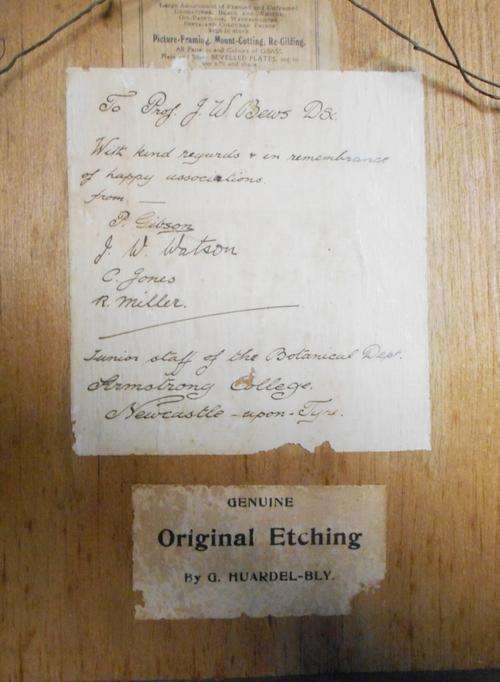 Large Assortment of Framed and Unframed
Picture-Framing, Mount-Cutting, Re-Gilding.
All Patterns and Colours of GLASS.
BEVELLED PLATES,
To Prof. J. W. Bews DSc.
With kind regards & in remembrance
of happy associations.
from —
P. Gibson
J. W. Watson
C. Jones
R. Miller.
Junior staff of the Botanical Dept.
Armstrong College.
Newcastle-upon-Tyne.
GENUINE
Original Etching
By G. HUARDEL-BLY.